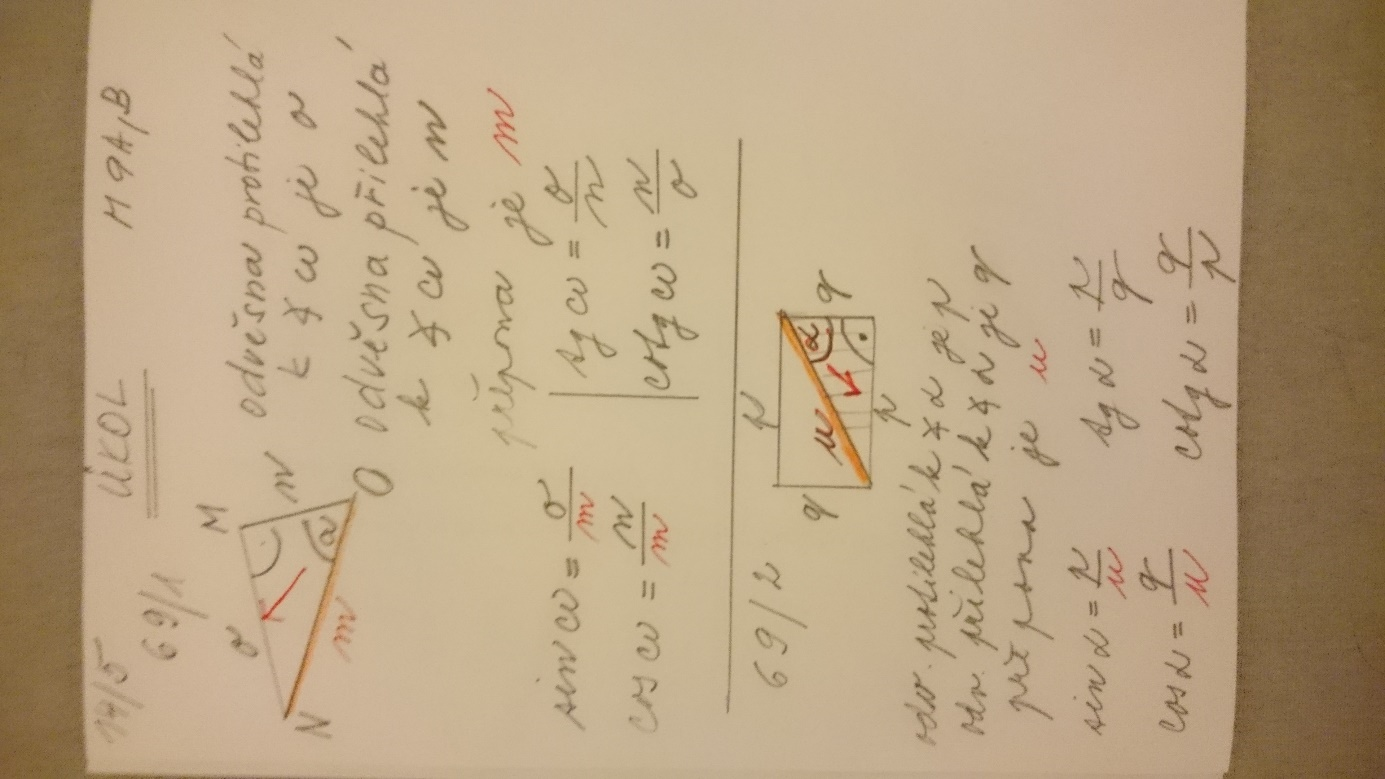 14/5 ÚKOL M9A,B
69/1
M
N
O
o
n
m
ω
odvěsna protilehlá
k ∢ ω je o
odvěsna přilehlá
k ∢ ω je n
přepona je m
sin ω = o/m
tg ω = o/n
cos ω = n/m
cotg ω = n/o
69/2
p
q
u
α
q
p
odv. protilehlá k ∢ α je p
odv. přilehlá k ∢ α je q
přepona je u
sin α = p/u
tg α = p/q
cos α = q/u
cotg α = q/p